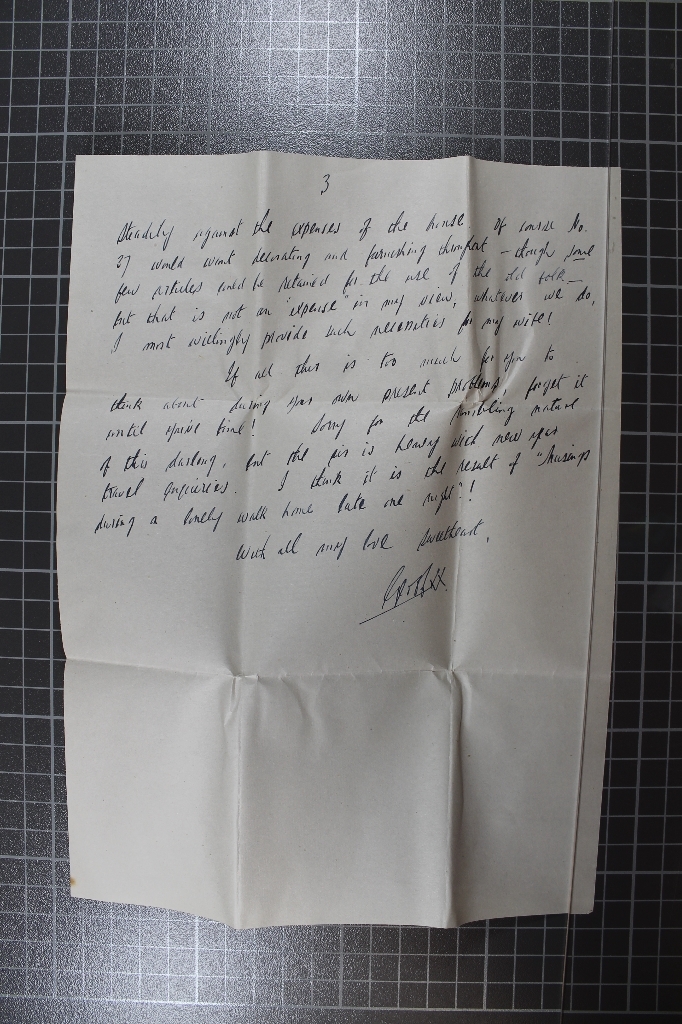 3
steadily against the expenses of the house. Of course No.
27 would want decorating and furnishing throughout – though some
few articles could be retained for the use of the old folk –
but that is not an "expense" in my view, whatever we do,
I most willingly provide such necessities for my wife!
If all this is too much for you to
think about during your own present problems, forget it
until you've time! Sorry for the rambling nature
of this darling, but the air is heavy with new year
travel enquiries. I think it is the result of "Musings
during a lonely walk home late one night"!
With all my love sweetheart,
Geoff XX